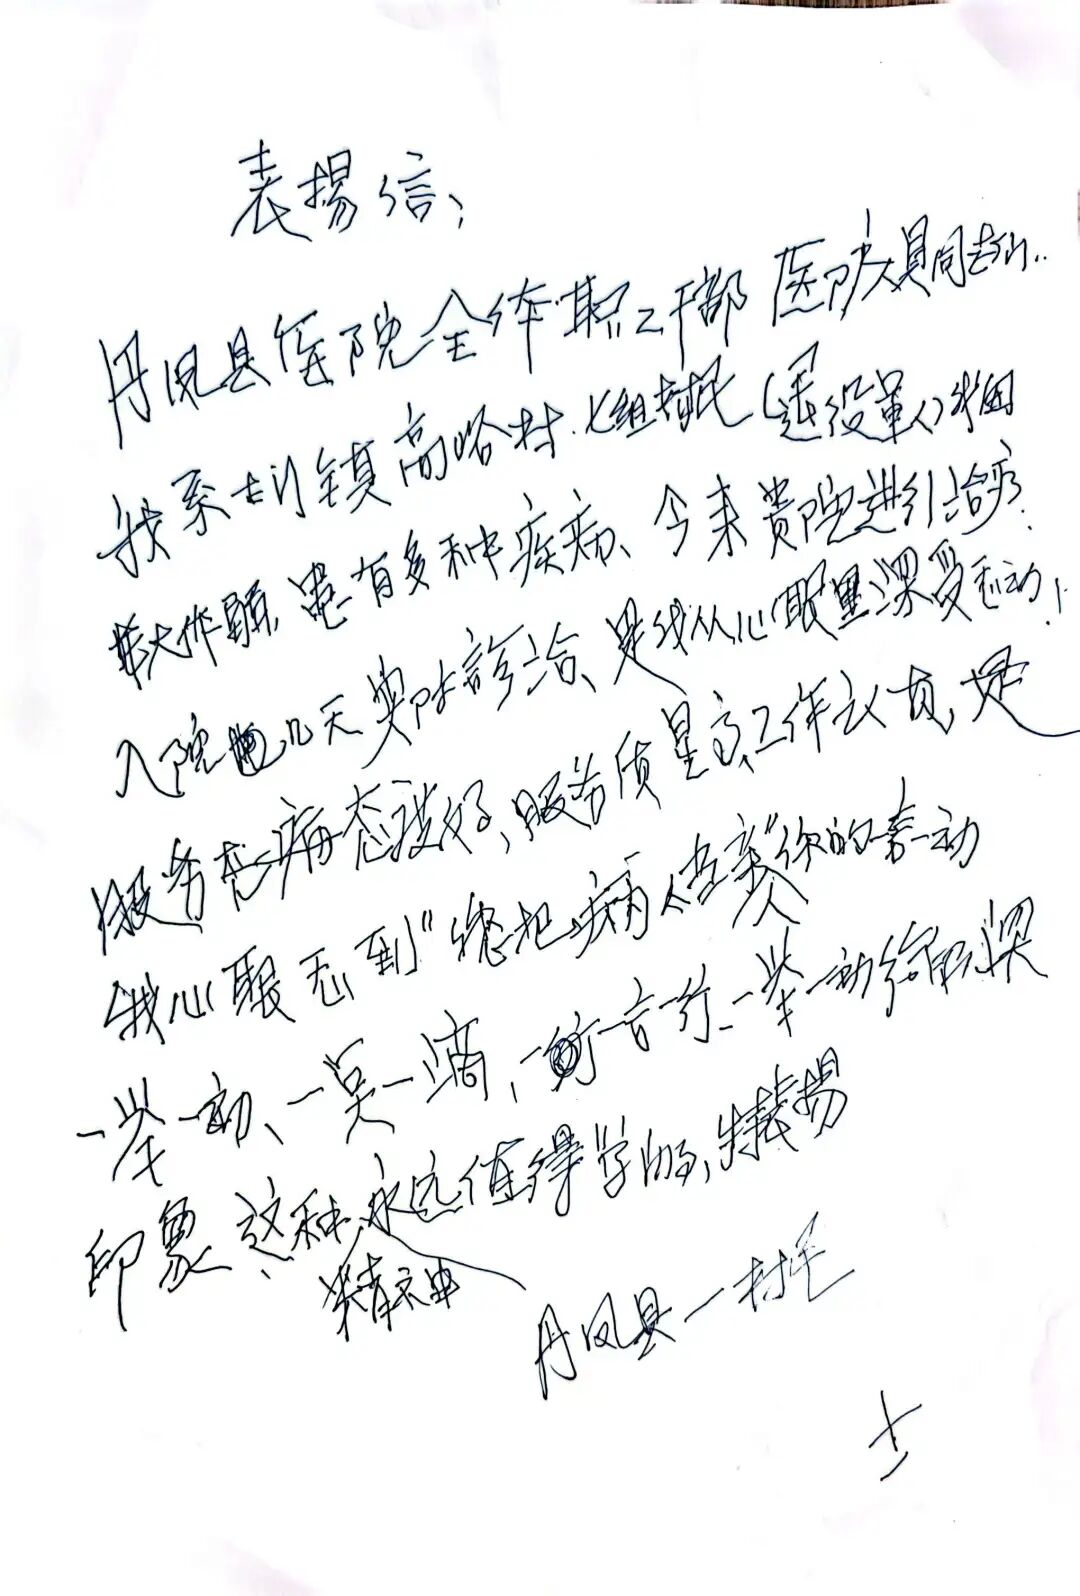 表揚信:
丹凤县医院全体职工干部医院人員同志们:
我系 镇高峪村七组村民(退役軍人)我因
年大体弱患有多种疾病、今来贵院进行治疗.
入院几天 診治、是我从心眼里深受感动!
服务态度好、服务质量高、工作认真、是
我心眼 到"您把病人当亲人"你的一动
一举一动、一 一滴、一言一行、一举一动给我深
印象、这种精神永远值得学的、特表揚
丹凤县一村民